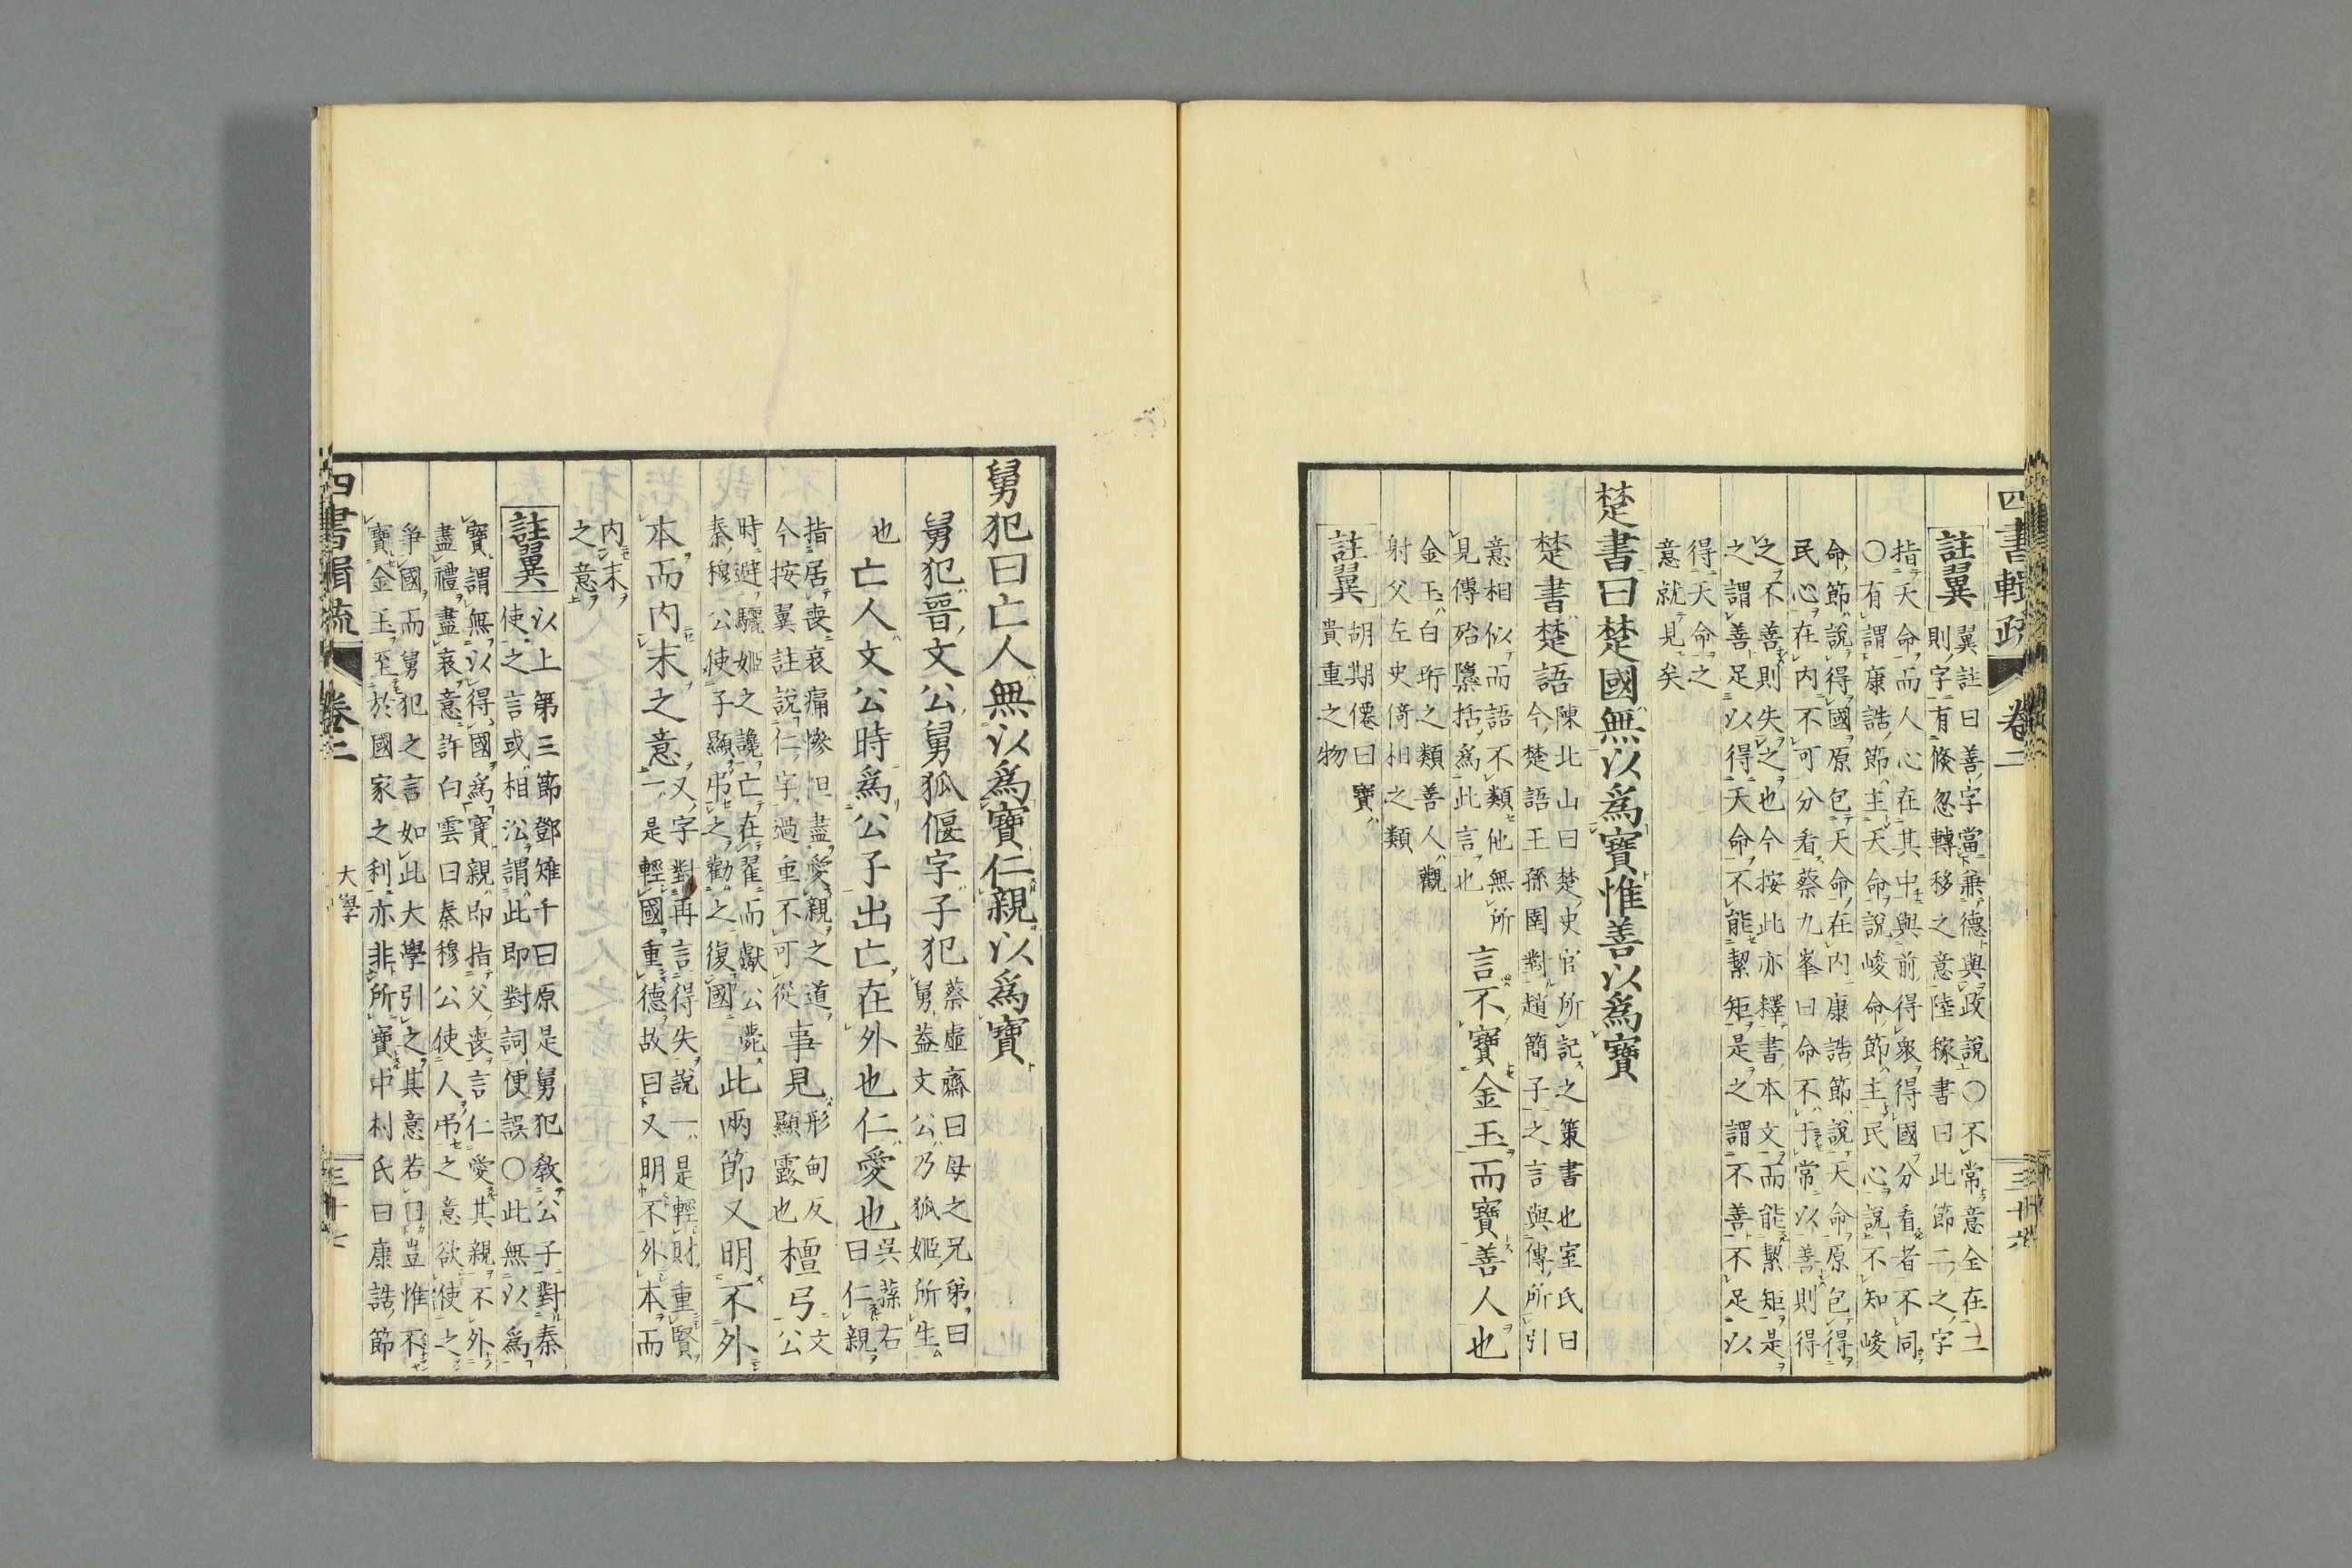 四書輯疏 卷二 三十六
註翼 翼註曰善字當兼德與政說○不常意全在二
則字有倏忽轉移之意陸稼書曰此節二之字
指天命而人心在其中與前得衆得國分看者不同
○有謂康誥節主天命說峻命節主民心說不知峻
命節說得國原包天命在內康誥節說天命原包得
民心在內不可分看蔡九峯曰命不于常以善則得
之不善則失之也今按此亦釋書本文而能絜矩是
之謂善足以得天命不能絜矩是之謂不善不足以
得天命之
意就見矣
楚書曰楚國無以爲寶惟善以爲寶
楚書楚語陳北山曰楚史官所記之策書也室氏曰
今楚語王孫圉對趙簡子之言與傳所引
意相似而語不類他無所
見傳殆檃括爲此言也
言不寶金玉而寶善人也
金玉白珩之類善人觀
射父左史倚相之類
註翼 胡期僊曰寶
貴重之物
舅犯曰亡人無以爲寶仁親以爲寶
舅犯晉文公舅狐偃字子犯蔡虛齋曰母之兄弟曰
舅蓋文公乃狐姬所生
也亡人文公時爲公子出亡在外也仁愛也吳蓀右
曰仁親
指居喪哀痛慘怛盡愛親之道
今按翼註說仁字過重不可從
事見形甸反
顯露也
檀弓文
公
時避驪姬之讒亡在翟而獻公薨
秦穆公使子顯弔之勸之復國
此兩節又明不外
本而內末之意又字對再言得失說一是輕財重賢
一是輕國重德故曰又明不外本而
內末
之意
註翼 以上第三節鄧雉千曰原是舅犯敎公子對秦
使之言或相訟謂此即對詞便誤○此無以爲
寶謂無以得國爲寶親即指父喪言仁愛其親不外
盡禮盡哀意許白雲曰秦穆公使人弔之意欲使之
爭國而舅犯之言如此大學引之其意若曰豈惟不
寶金玉至於國家之利亦非所寶中村氏曰康誥節
四書輯疏 卷二 大學 三十七